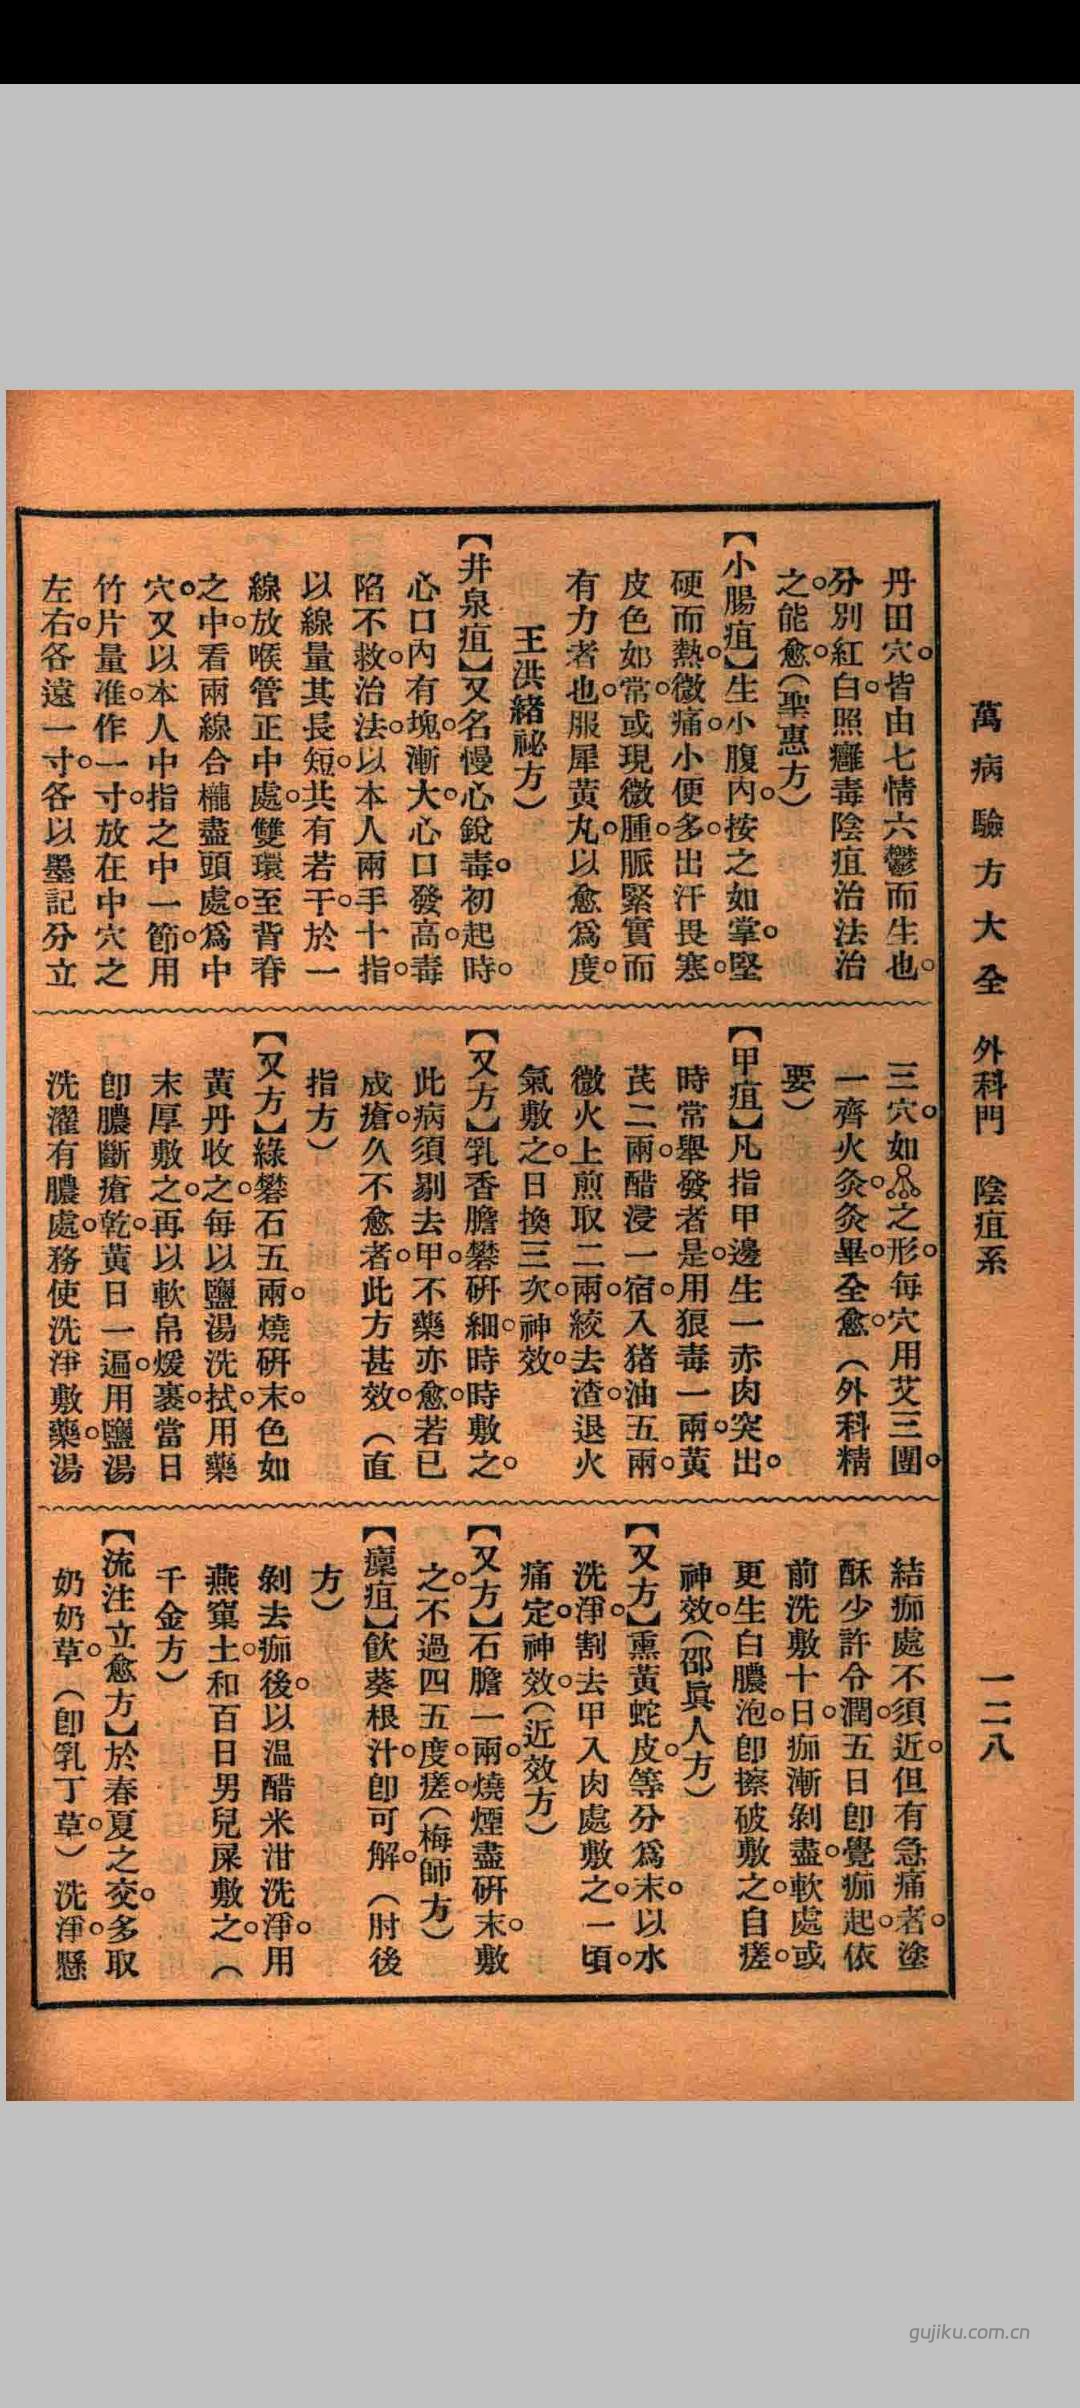 萬病驗方大全　外科門　陰疽系　一二八
丹田穴。皆由七情六鬱而生也。
分別紅白。照癰毒陰疽治法治
之。能愈。(聖惠方)
【小腸疽】生小腹內。按之如掌。堅
硬而熱。微痛。小便多。出汗畏寒。
皮色如常。或現微腫。脈緊實而
有力者也。服犀黃丸。以愈爲度。
王洪緒祕方)
【井泉疽】又名慢心銳毒。初起時。
心口內有塊。漸大。心口發高。毒
陷不救。治法。以本人兩手十指。
以線量其長短。共有若干。於一
線放喉管正中處。雙環至背脊
之中。看兩線合櫳盡頭處。爲中
穴。又以本人中指之中一節。用
竹片量准。作一寸。放在中穴之
左右。各遠一寸。各以墨記。分立
三穴。如 之形。每穴用艾三團。
一齊火灸。灸畢。全愈。(外科精
要)
【甲疽】凡指甲邊生一赤肉突出。
時常舉發者是。用狼毒一兩。黃
芪二兩。醋浸一宿。入猪油五兩。
微火上煎。取二兩。絞去渣。退火
氣。敷之。日換三次。神效。
【又方】乳香膽礬研細。時時敷之。
此病須剔去甲。不藥亦愈。若已
成瘡。久不愈者。此方甚效。(直
指方)
【又方】綠礬石五兩。燒研末。色如
黃丹。收之。每以鹽湯洗拭。用藥
末厚敷之。再以軟帛煖裹。當日
卽膿斷瘡乾。黃日一遍。用鹽湯
洗濯。有膿處。務使洗淨敷藥。湯
結痂處不須近。但有急痛者。塗
酥少許令潤。五日卽覺痂起。依
前洗敷。十日。痂漸剝盡。軟處或
更生白膿泡。卽擦破敷之。自瘥。
神效。(邵眞人方)
【又方】熏黃蛇皮。等分爲末。以水
洗淨。割去甲入肉處。敷之。一頃。
痛定。神效。(近效方)
【又方】石膽一兩。燒煙盡。研末。敷
之。不過四五度。瘥。(梅師方)
【瘭疽】飲葵根汁。卽可解。(肘後
方)
剝去痂後。以溫醋米泔洗淨。用
燕窠土。和百日男兒屎敷之。(
千金方)
【流注立愈方】於春夏之交。多取
奶奶草。(卽乳丁草。)洗淨。懸
gujiku.com.cn